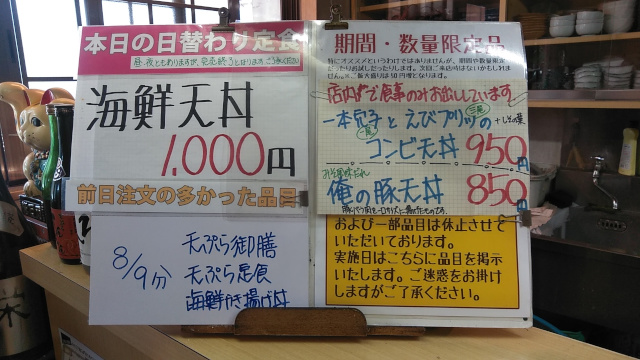 本日の日替わり定食
海鮮天丼
1,000円
前日注文の多かった品目
8/9分
天ぷら御膳
天ぷら定食
海鮮かき揚げ丼
期間・数量限定品
特にオススメというわけではありませんが、期間や数量限定
店内で食事のみお出ししています
一本穴子とえびプリッツの
コンビ天丼 950円
俺の豚天丼 850円
および一部品目は休止させて
いただいております。
実施日はこちらに品目を掲示
いたします。ご迷惑をお掛け
しますがご了承ください。